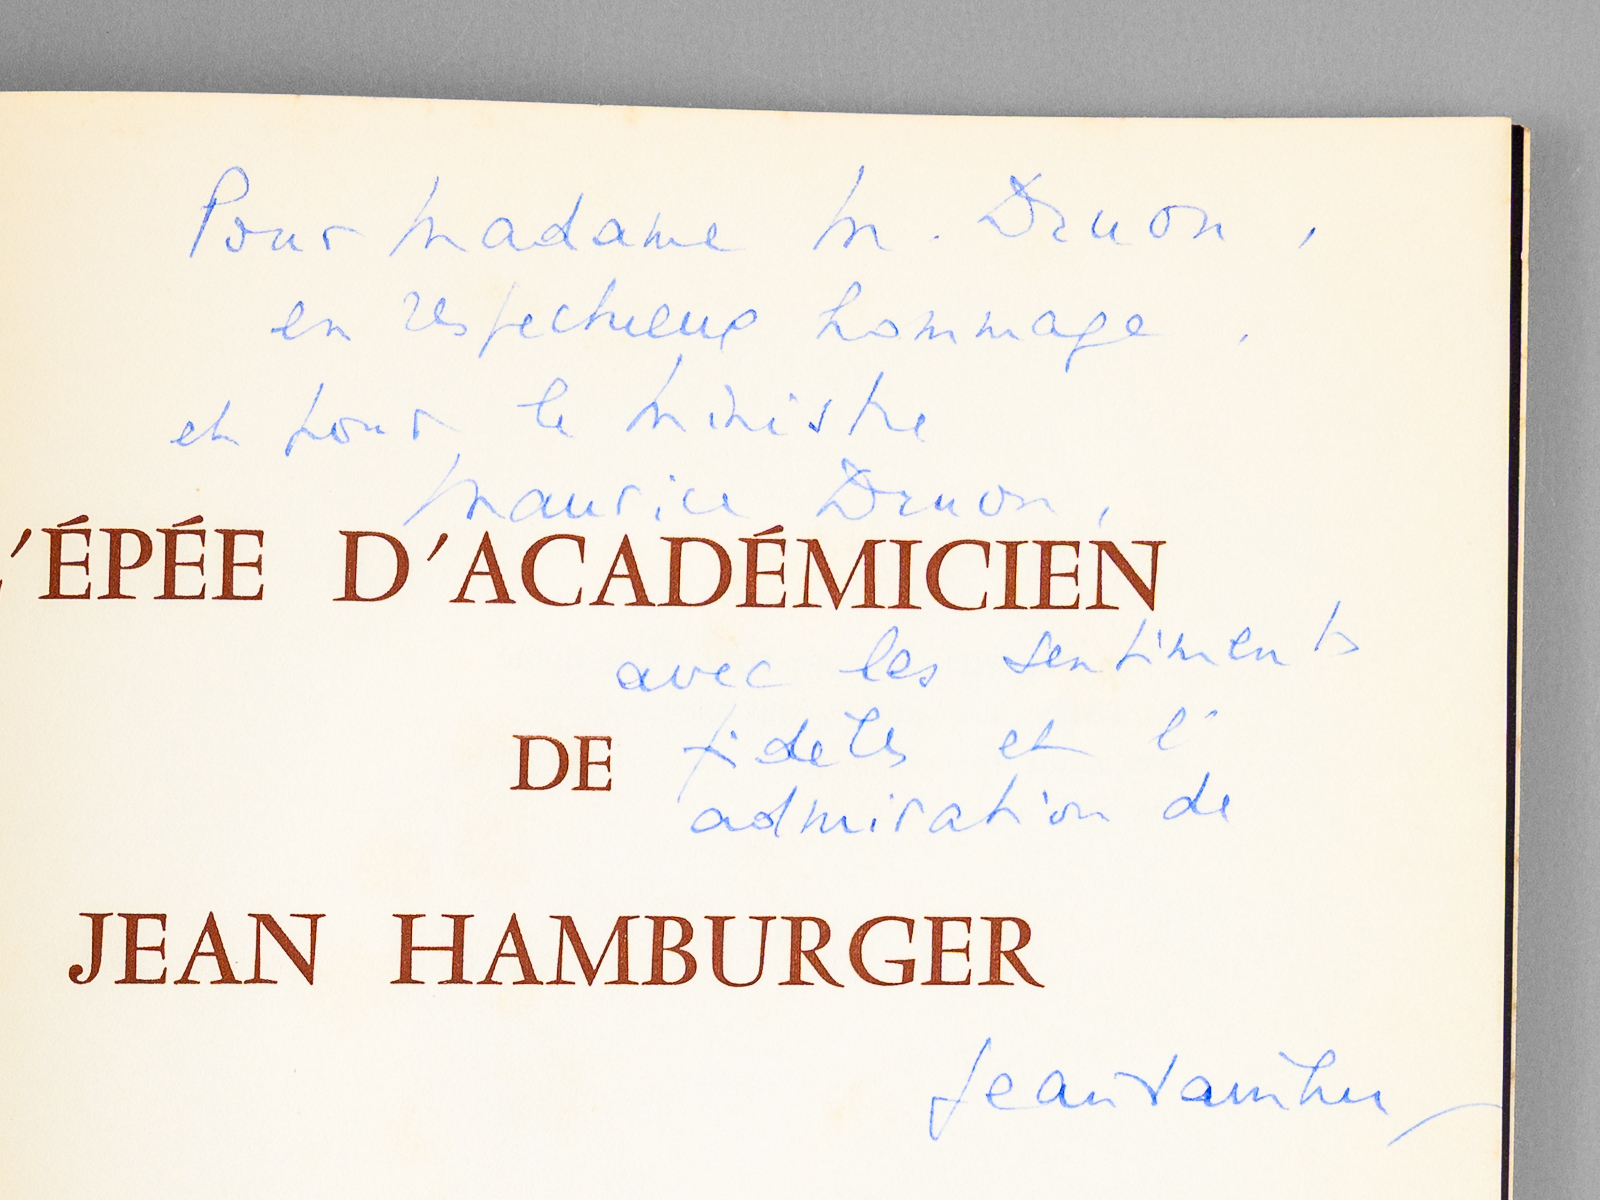 Pour Madame M. Druon,
en respectueux hommage,
et pour le ministre
Maurice Druon,
L'ÉPÉE D'ACADÉMICIEN
avec les sentiments
DE
fidèles et l'
admiration de
JEAN HAMBURGER
Jean Hamburger